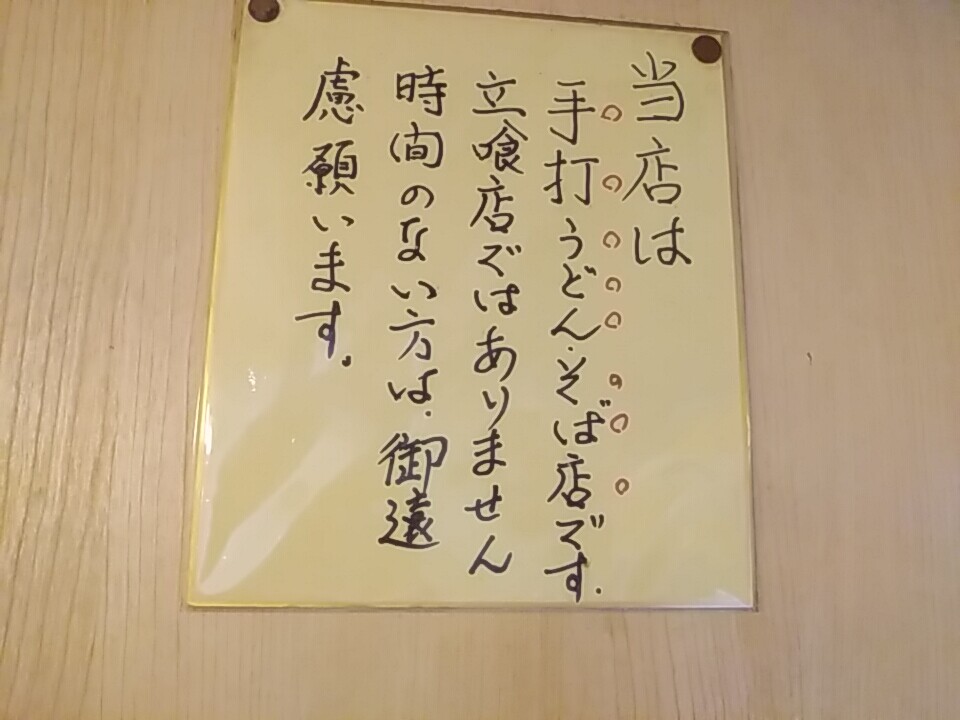 当店は
手打うどん・そば店です.
立喰店ではありません
時間のない方は、御遠
慮願います。